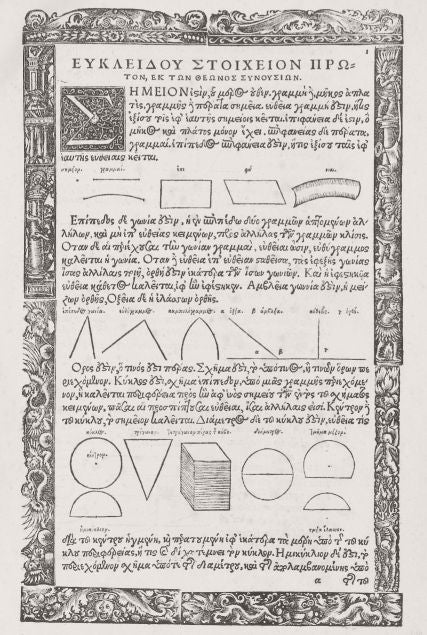 ΕΥΚΛΕΙΔΟΥ ΣΤΟΙΧΕΙΟΝ ΠΡΩ-
ΤΟΝ, ΕΚ ΤΩΝ ΘΕΩΝΟΣ ΣΥΝΟΥΣΙΩΝ.
ΗΜΕΙΟΝ ἐςὶν, οὗ μέρος οὐθέν. γραμμὴ δὲ, μῆκος ἀπλα
τὲς, γραμμῆς δὲ πέρατα σημεῖα. εὐθεῖα γραμμή ὅςιν, ἥτις
ἐξίσου τοῖς ἐφ' ἑαυτῆς σημείοις κεῖται. ἐπιφάνεια δέ ἐςιν, ὃ
μῆκος καὶ πλάτος μόνον ἔχει. ἐπιφανείας δὲ πέρατα,
γραμμαί. ἐπίπεδος ἐπιφάνειά ὅςιν, ἥτις ἐξίσου ταῖς ἐφ'
ἑαυτῆς εὐθείαις κεῖται.
σημεῖον. γραμμαί.
Επίπεδος δὲ γωνία ὅςὶν, ἡ ἐν ἐπιπέδῳ δύο γραμμῶν ἁπτομένων ἀλ-
λήλων, καὶ μὴ ἐπ' εὐθείας κειμένων, πρὸς ἀλλήλας τῶν γραμμῶν κλίσις.
Οταν δὲ αἱ περιέχουσαι τὴν γωνίαν γραμμαὶ, εὐθεῖαι ὦσιν, εὐθύγραμμος
καλεῖται ἡ γωνία. Οταν δὲ εὐθεῖα ἐπ' εὐθεῖαν σταθεῖσα, τὰς ἐφεξῆς γωνίας
ἴσας ἀλλήλαις ποιῇ, ὀρθή ὅςιν ἑκατέρα τῶν ἴσων γωνιῶν. Καὶ ἡ ἐφεςηκυῖα
εὐθεῖα κάθετος καλεῖται, ἐφ' ἣν ἐφέςηκεν. Αμβλεῖα γωνία ὅςὶν, ἡ μεί-
ζων ὀρθῆς, Οξεῖα δὲ ἡ ἐλάσσων ὀρθῆς.
α β γ
Ορος ὅςὶν, ὅ τινός ὅςι πέρας. Σχῆμά ὅςι, τὸ ὑπό τινος, ἤ τινων ὅρων πε
ριεχόμενον. Κύκλος ὅςὶ, σχῆμα ἐπίπεδον, ὑπὸ μιᾶς γραμμῆς περιεχόμε
νον, ἣ καλεῖται περιφέρεια, πρὸς ἣν ἀφ' ἑνὸς σημείου τῶν ἐντὸς τοῦ σχήματος
κειμένων, πᾶσαι αἱ προσπίπτουσαι εὐθεῖαι, ἴσαι ἀλλήλαις εἰσί. Κέντρον δὲ
τοῦ κύκλου, τὸ σημεῖον καλεῖται. Διάμετρος δὲ τοῦ κύκλου ὅςὶν, εὐθεῖά τις
κύκλος. τρίγωνον. διάμετρος. τμῆμα μεῖζον.
κέντρον.
ἡμικύκλιον. τμῆμα ἔλασσον.
διὰ τοῦ κέντρου ἠγμένη, καὶ περατουμένη ἐφ' ἑκάτερα τὰ μέρη ὑπὸ τῆς τοῦ κύ
κλου περιφερείας, ἥτις καὶ δίχα τέμνει τὸν κύκλον. Ημικύκλιον δέ ὅςι, τὸ
περιεχόμενον σχῆμα ὑπό τε τῆς διαμέτρου, καὶ τῆς ἀπολαμβανομένης ὑπὸ
α